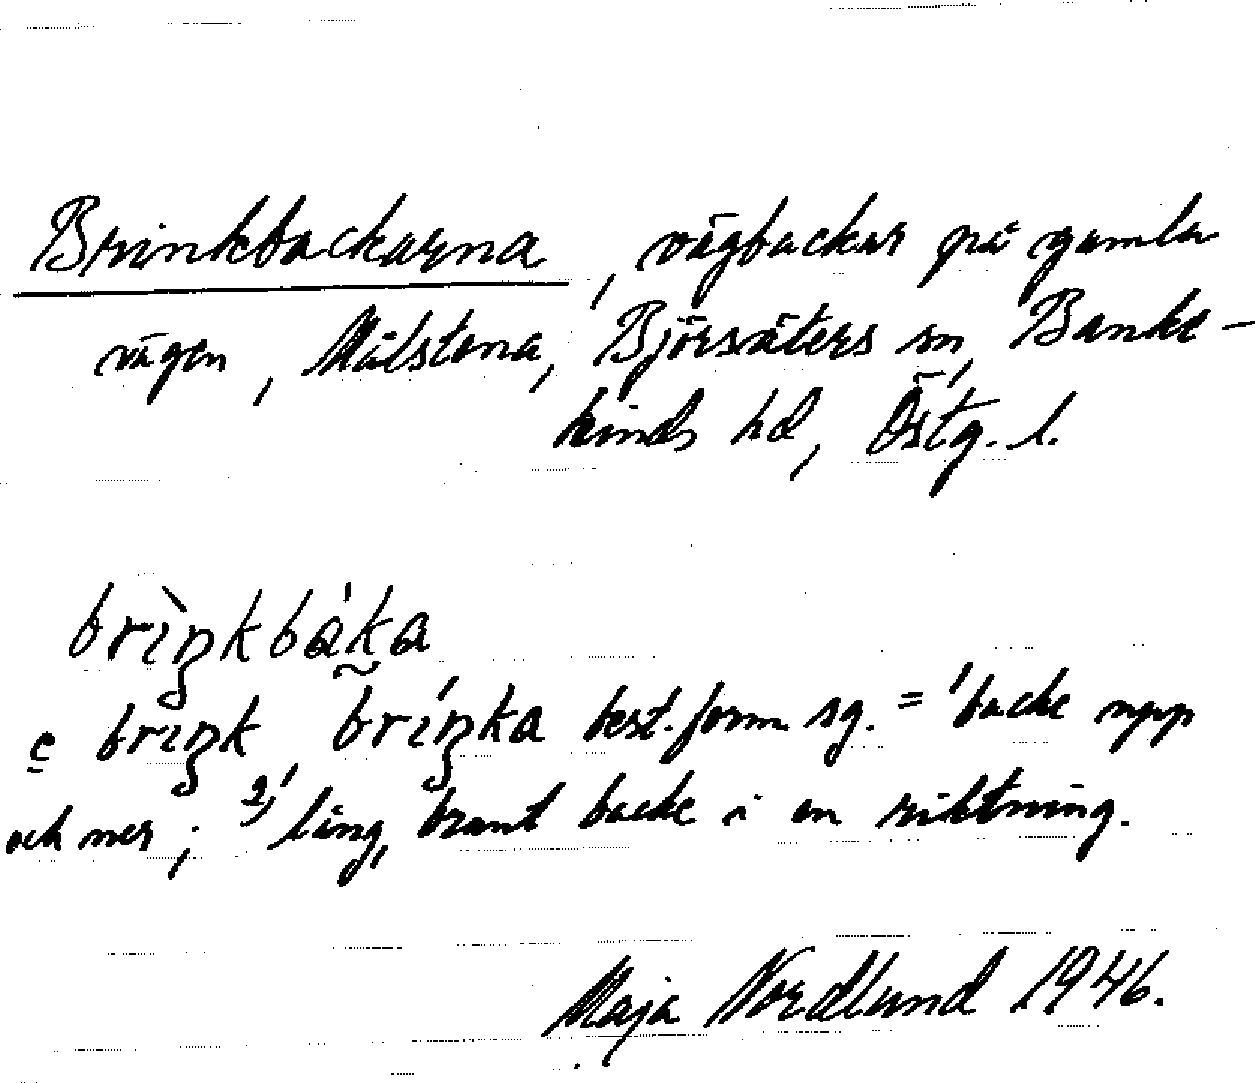 Brinkbackarna, vägbackar på gamla
vägen, Målstena, Björsäters sn, Banke-
kinds hd, Östg. l.
brìŋkbáka
e brıŋk bríŋka best. form sg. = 1/ backe upp
och ner; 2/ lång, brant backe i en riktning.
Maja Nordlund 1946.